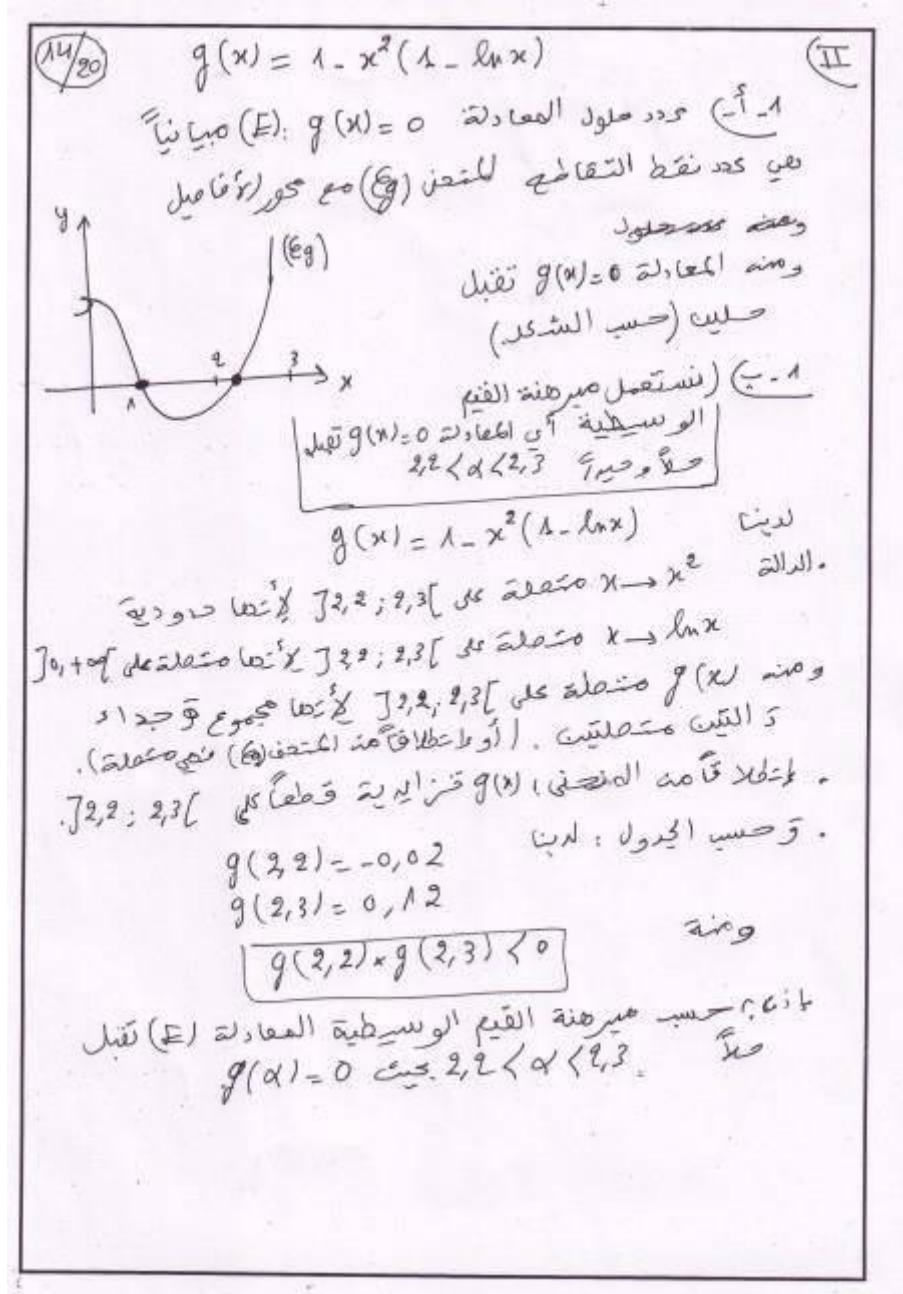 14/20
g(x) = 1 - x²(1 - ln x)
II
1-أ-) عدد حلول المعادلة g(x) = 0 : (E) مبيانياً
هي عدد نقط التقاطع للمنحنى (Cg) مع محور الأفاصيل
ومنه المعادلة g(x)=0 تقبل
حلين (حسب الشكل)
y
(Cg)
1 2 3 x
1-ب-) (نستعمل مبرهنة القيم
الوسيطية أي المعادلة g(x)=0 تقبل
حلاً وحيداً 2,2 < α < 2,3
لدينا g(x) = 1 - x²(1 - ln x)
. الدالة x → x² متصلة على ]2,2 ; 2,3[ لأنها حدودية
x → ln x متصلة على ]2,2 ; 2,3[ لأنها متصلة على ]0,+∞[
ومنه g(x) متصلة على ]2,2 ; 2,3[ لأنها مجموع وجداء
دالتين متصلتين . (أو انطلاقاً من المنحنى (Cg) فهي متصلة).
. انطلاقاً من المنحنى، g(x) تزايدية قطعاً على ]2,2 ; 2,3[.
. وحسب الجدول : لدينا
g(2,2) = -0,02
g(2,3) = 0,12
ومنه
g(2,2) × g(2,3) < 0
إذن : حسب مبرهنة القيم الوسيطية المعادلة (E) تقبل
حلاً 2,2 < α < 2,3 بحيث g(α) = 0